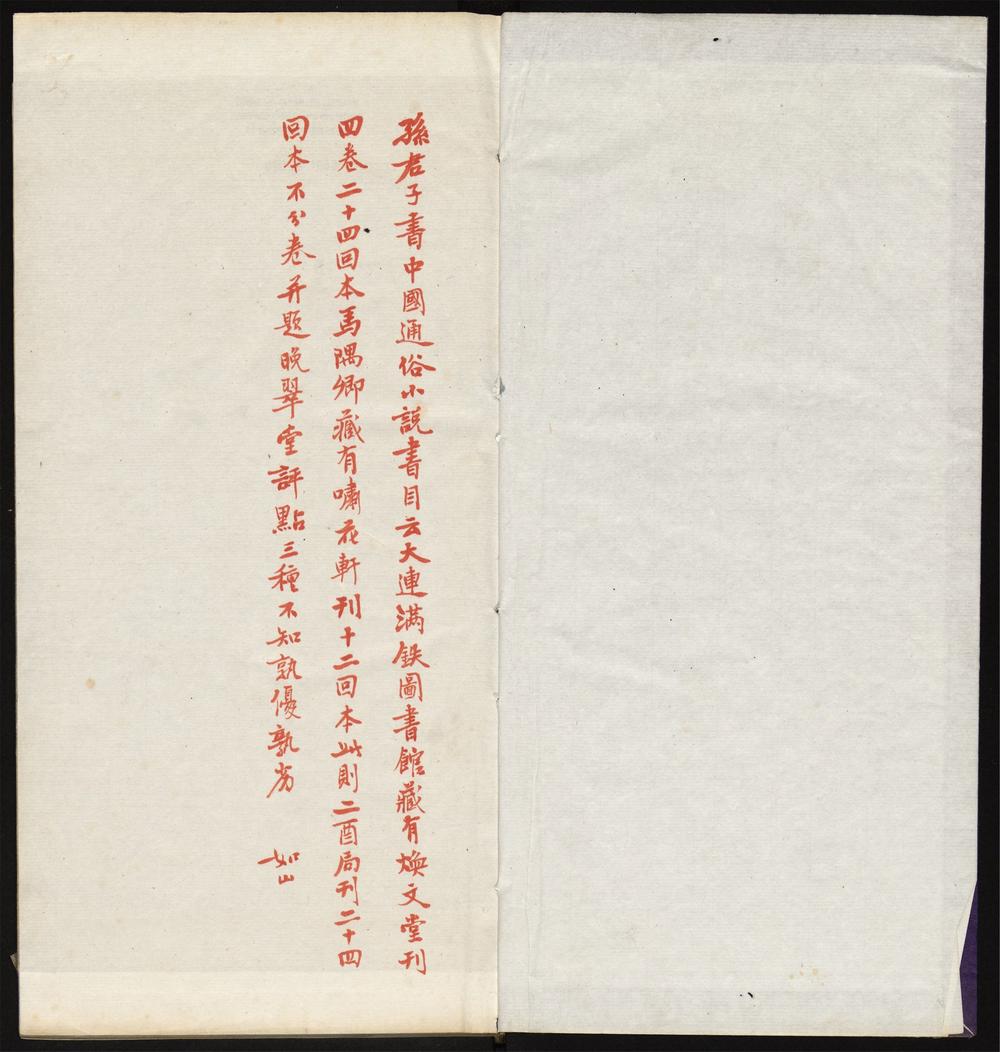 孫君子書中國通俗小説書目云大連滿鉄圖書館藏有煥文堂刊
四卷二十四回本馬隅卿藏有嘯花軒刊十二回本此則二酉局刊二十四
回本不分卷并題晚翠堂評點三種不知孰優孰劣
如山